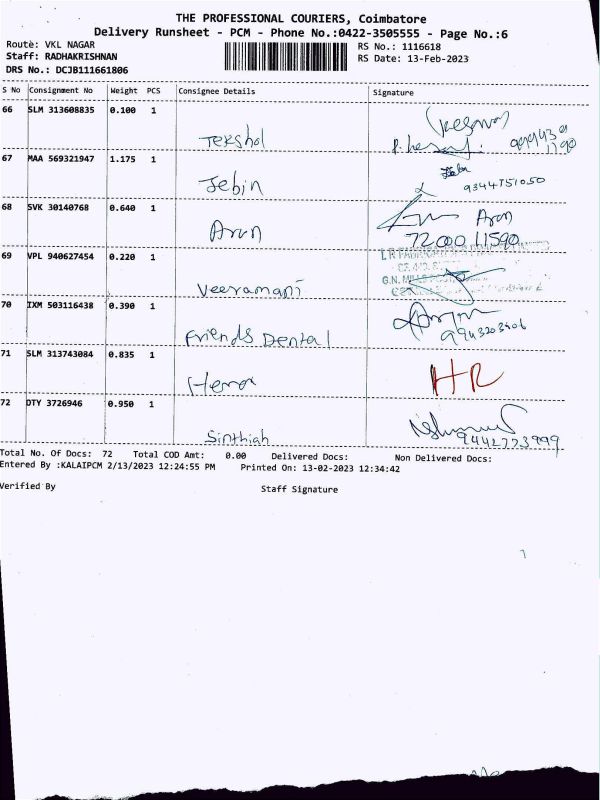 THE PROFESSIONAL COURIERS, Coimbatore
Delivery Runsheet - PCM - Phone No.:0422-3505555 - Page No.:6
Route: VKL NAGAR
Staff: RADHAKRISHNAN
DRS No.: DCJB111661806
RS No.: 1116618
RS Date: 13-Feb-2023
S No Consignment No Weight PCS Consignee Details Signature
66 SLM 313608835 0.100 1
Tekshol
67 MAA 569321947 1.175 1
Jebin
9344751050
68 SVK 30140768 0.640 1
Arun Arun
72000 11590
69 VPL 940627454 0.220 1
G.N. MILLS
Veeramani
70 IXM 503116438 0.390 1
Friends Dental
9943203606
71 SLM 313743084 0.835 1
Hema HR
72 DTY 3726946 0.950 1
Sinthiah 9442773999
Total No. Of Docs: 72 Total COD Amt: 0.00 Delivered Docs: Non Delivered Docs:
Entered By :KALAIPCM 2/13/2023 12:24:55 PM Printed On: 13-02-2023 12:34:42
Verified By Staff Signature